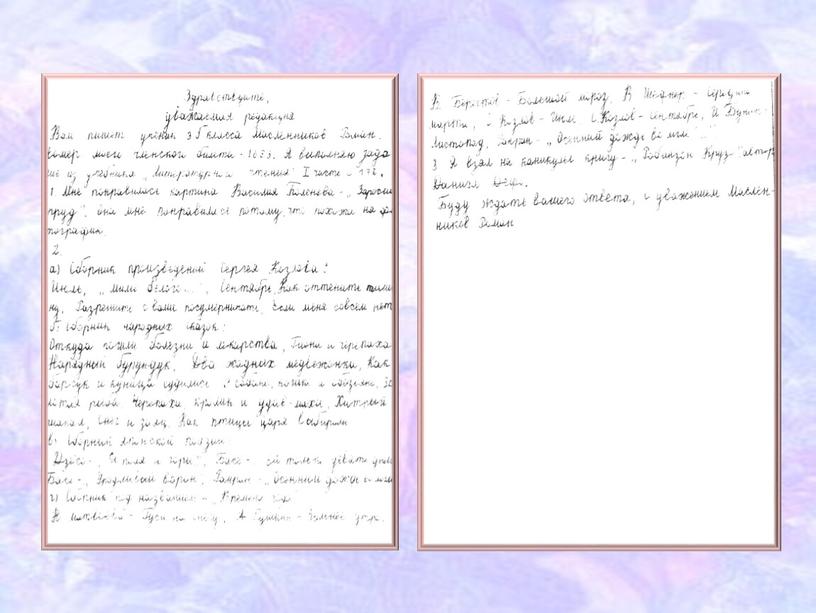 Здравствуйте,
уважаемая редакция
Вам пишет ученик 3 Б класса Масленников Роман.
Номер моего членского билета - 1673. Я выполняю зада
ние из учебника „Литературное чтение" I часть с 178.
1 Мне понравилась картина Василия Поленова - „Заросший
пруд". Она мне понравилась потому, что похожа на фо
тографию.
2.
а) Сборник произведений Сергея Козлова:
Июль, Сентябрь, Как оттенить тиши
ну, Разрешите с вами посумерничать, Если меня совсем нет
б) Сборник народных сказок:
Откуда пошли болезни и лекарства, и черепаха
Нарядный бурундук, Два жадных медвежонка, Как
барсук и куница судились, О собаке, кошке и
черепаха, кролик и удав Хитрый
шакал, Как птицы царя выбирали
в) Сборник японской поэзии:
„И поля и горы", Басё -
Басё - ворон, „Осенний дождь во мгле
г) Сборник под названием - „Времена года"
Гуси на снегу, А Пушкин - Зимнее утро.
В Берестов - Большой мороз, В Шефнер - Середина
марта, С Козлов - Июль С. Козлов - Сентябрь, И Бунин -
Листопад, „Осенний дождь во мгле"
3 Я взял на каникулы книгу - „Робинзон Крузо" автор
Даниэл Дефо.
Буду ждать вашего ответа, с уважением Маслен-
ников Роман